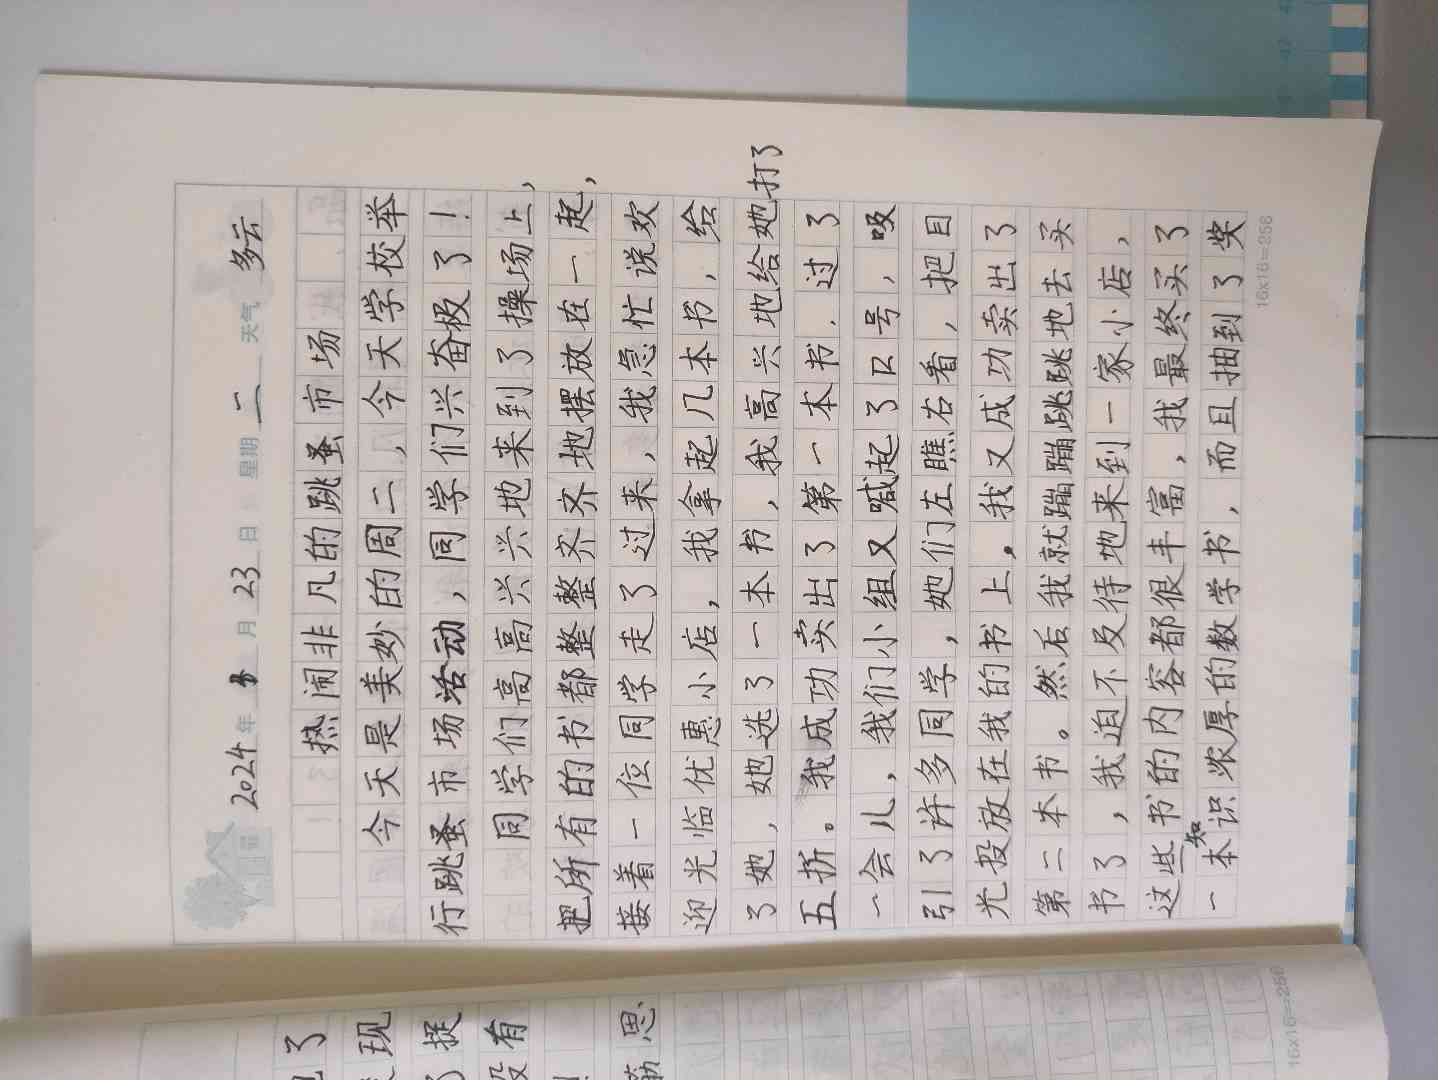 2024年 月 23 日 星期 二 天气 多云
热闹非凡的跳蚤市场
今天是美妙的周二，今天学校举
行跳蚤市场活动，同学们兴奋极了！
同学们高高兴兴地来到了操场上，
把所有的书都整整齐齐地摆放在一起，
接着一位同学走了过来，我急忙说欢
迎光临优惠小店，我拿起几本书，给
了她，她选了一本书，我高兴地给她打了
五折。我成功卖出了第一本书．过了
一会儿，我们小组又喊起了口号，吸
引了许多同学，她们左瞧右看，把目
光投放在我的书上。我又成功卖出了
第二本书。然后我就蹦蹦跳跳地去买
书了，我迫不及待地来到一家小店，
这些书的内容都很丰富，我最终买了
一本知识浓厚的数学书，而且抽到了奖
16x16=256
现
捉
没有
思
16x16=256